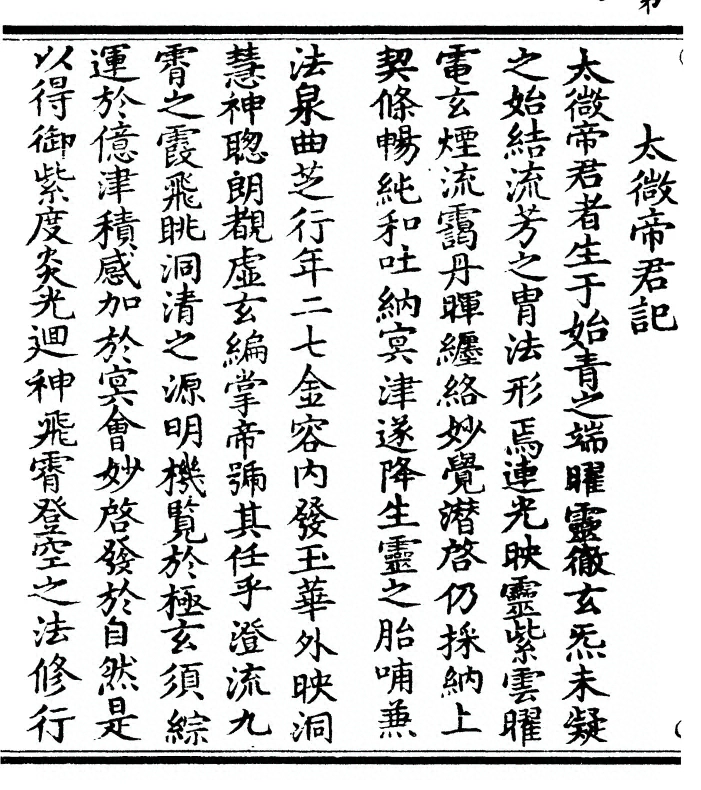 太微帝君記
太微帝君者生于始青之端曜靈徹玄炁未凝
之始結流芳之胄法形焉連光映靈紫雲曜
電玄煙流靄丹暉纏絡妙覺潛啓仍採納上
契條暢純和吐納冥津遂降生靈之胎哺兼
法泉曲芝行年二七金容內發玉華外映洞
慧神聦朗覩虛玄編掌帝號其任乎澄流九
霄之霞飛眺洞清之源明機覽於極玄須綜
運於億津積感加於冥會妙啓發於自然是
以得御紫度炎光迴神飛霄登空之法修行